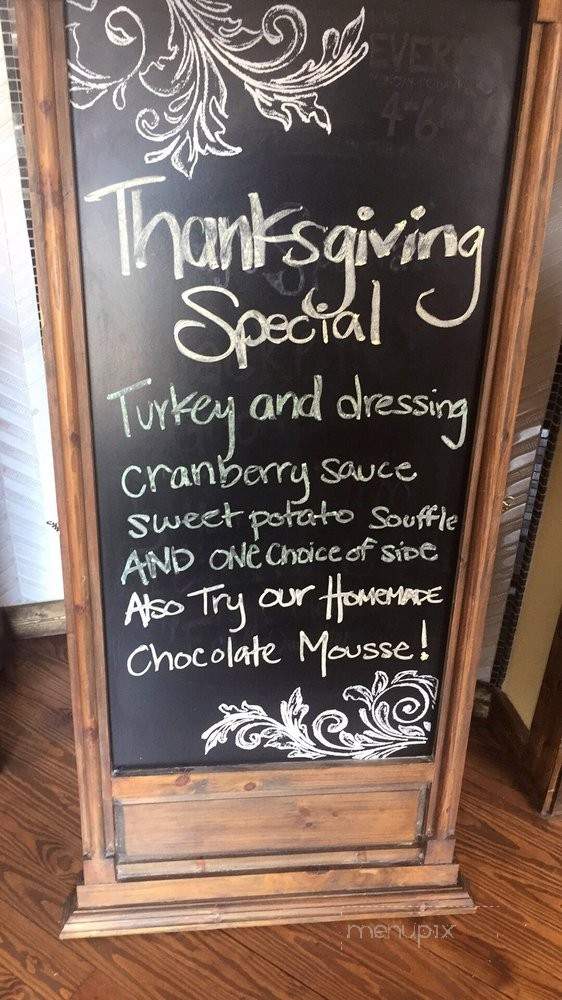 EVERY
4-6
Thanksgiving
Special
Turkey and dressing
cranberry sauce
sweet potato Souffle
AND ONE Choice of side
Also Try our HOMEMADE
Chocolate Mousse!
menupix